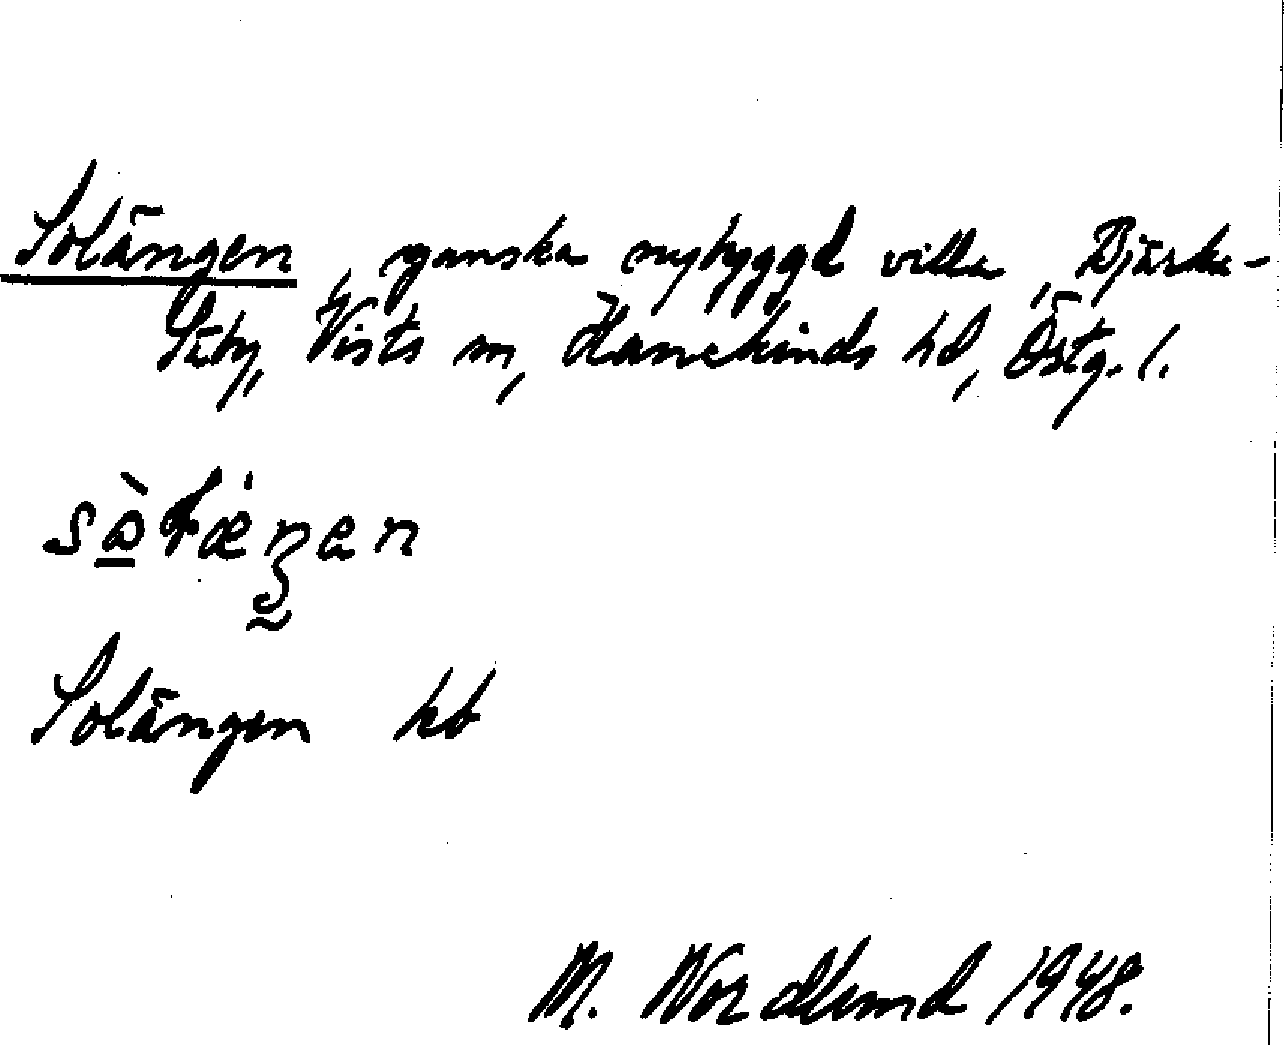 Solängen, ganska nybyggd villa, Bjärka-
Säby, Vists sn, Hanekinds hd, Östg. l.
Solängen kb
M. Nordlund 1948.